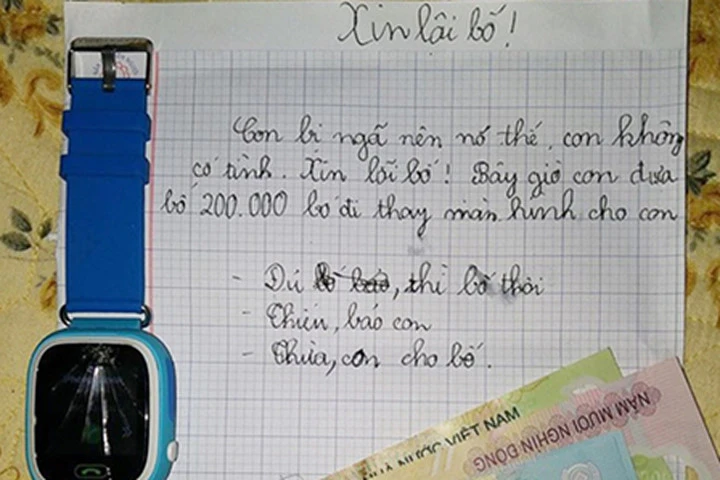 Xin lỗi bố!
Con bị ngã nên nó thế, con không
cố tình. Xin lỗi bố! Bây giờ con đưa
bố 200.000 bố đi thay màn hình cho con
- Đủ, thì bố thôi
- Thiếu, báo con
- Thừa, con cho bố.
NƯỚC VIỆT NAM
NĂM MƯƠI NGHÌN ĐỒNG